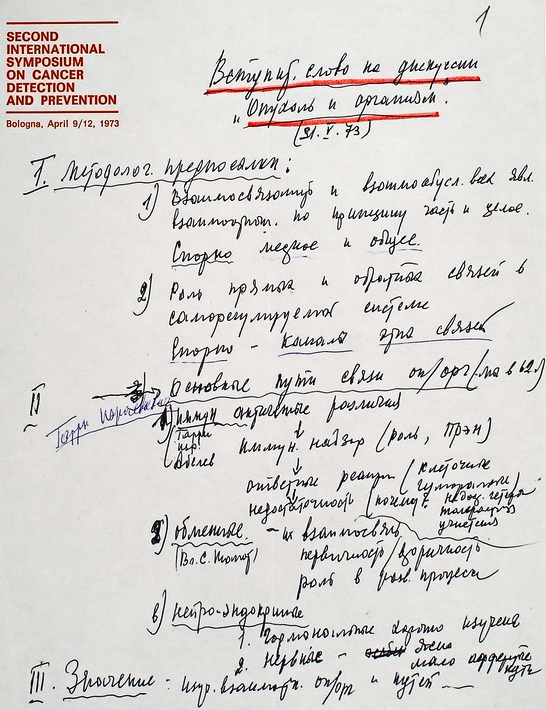 1
SECOND
INTERNATIONAL
SYMPOSIUM
ON CANCER
DETECTION
AND PREVENTION
Bologna, April 9/12, 1973
Вступит. слово на дискуссии
"Опухоль и организм".
(31.V.73)
I. Методолог. предпосылки:
1) Взаимосвязанность и взаимообусл. всех явл.
взаимоотнош. по принципу часть и целое.
Спорно местное и общее.
2) Роль прямых и обратных связей в
саморегулируемой системе
Спорно - каналы этих связей
II Основные пути связи оп/орг (на в 62)
а) иммун антигенные различия
Гарри
Абелев Иммун. надзор (роль, Прэн)
ответные реакции (клеточные
гуморальные)
недостаточность (почему?
толерантность
угнетения
б) обменные - их взаимосвязь
(Вл. С. Шапот) первичность/вторичность
роль в разв. процесса
в) нейро-эндокринные
1. Гормональные хорошо изучена
2. Нервные - мало
пути
III. Значение: изуч. взаимоотн. оп/орг и путей